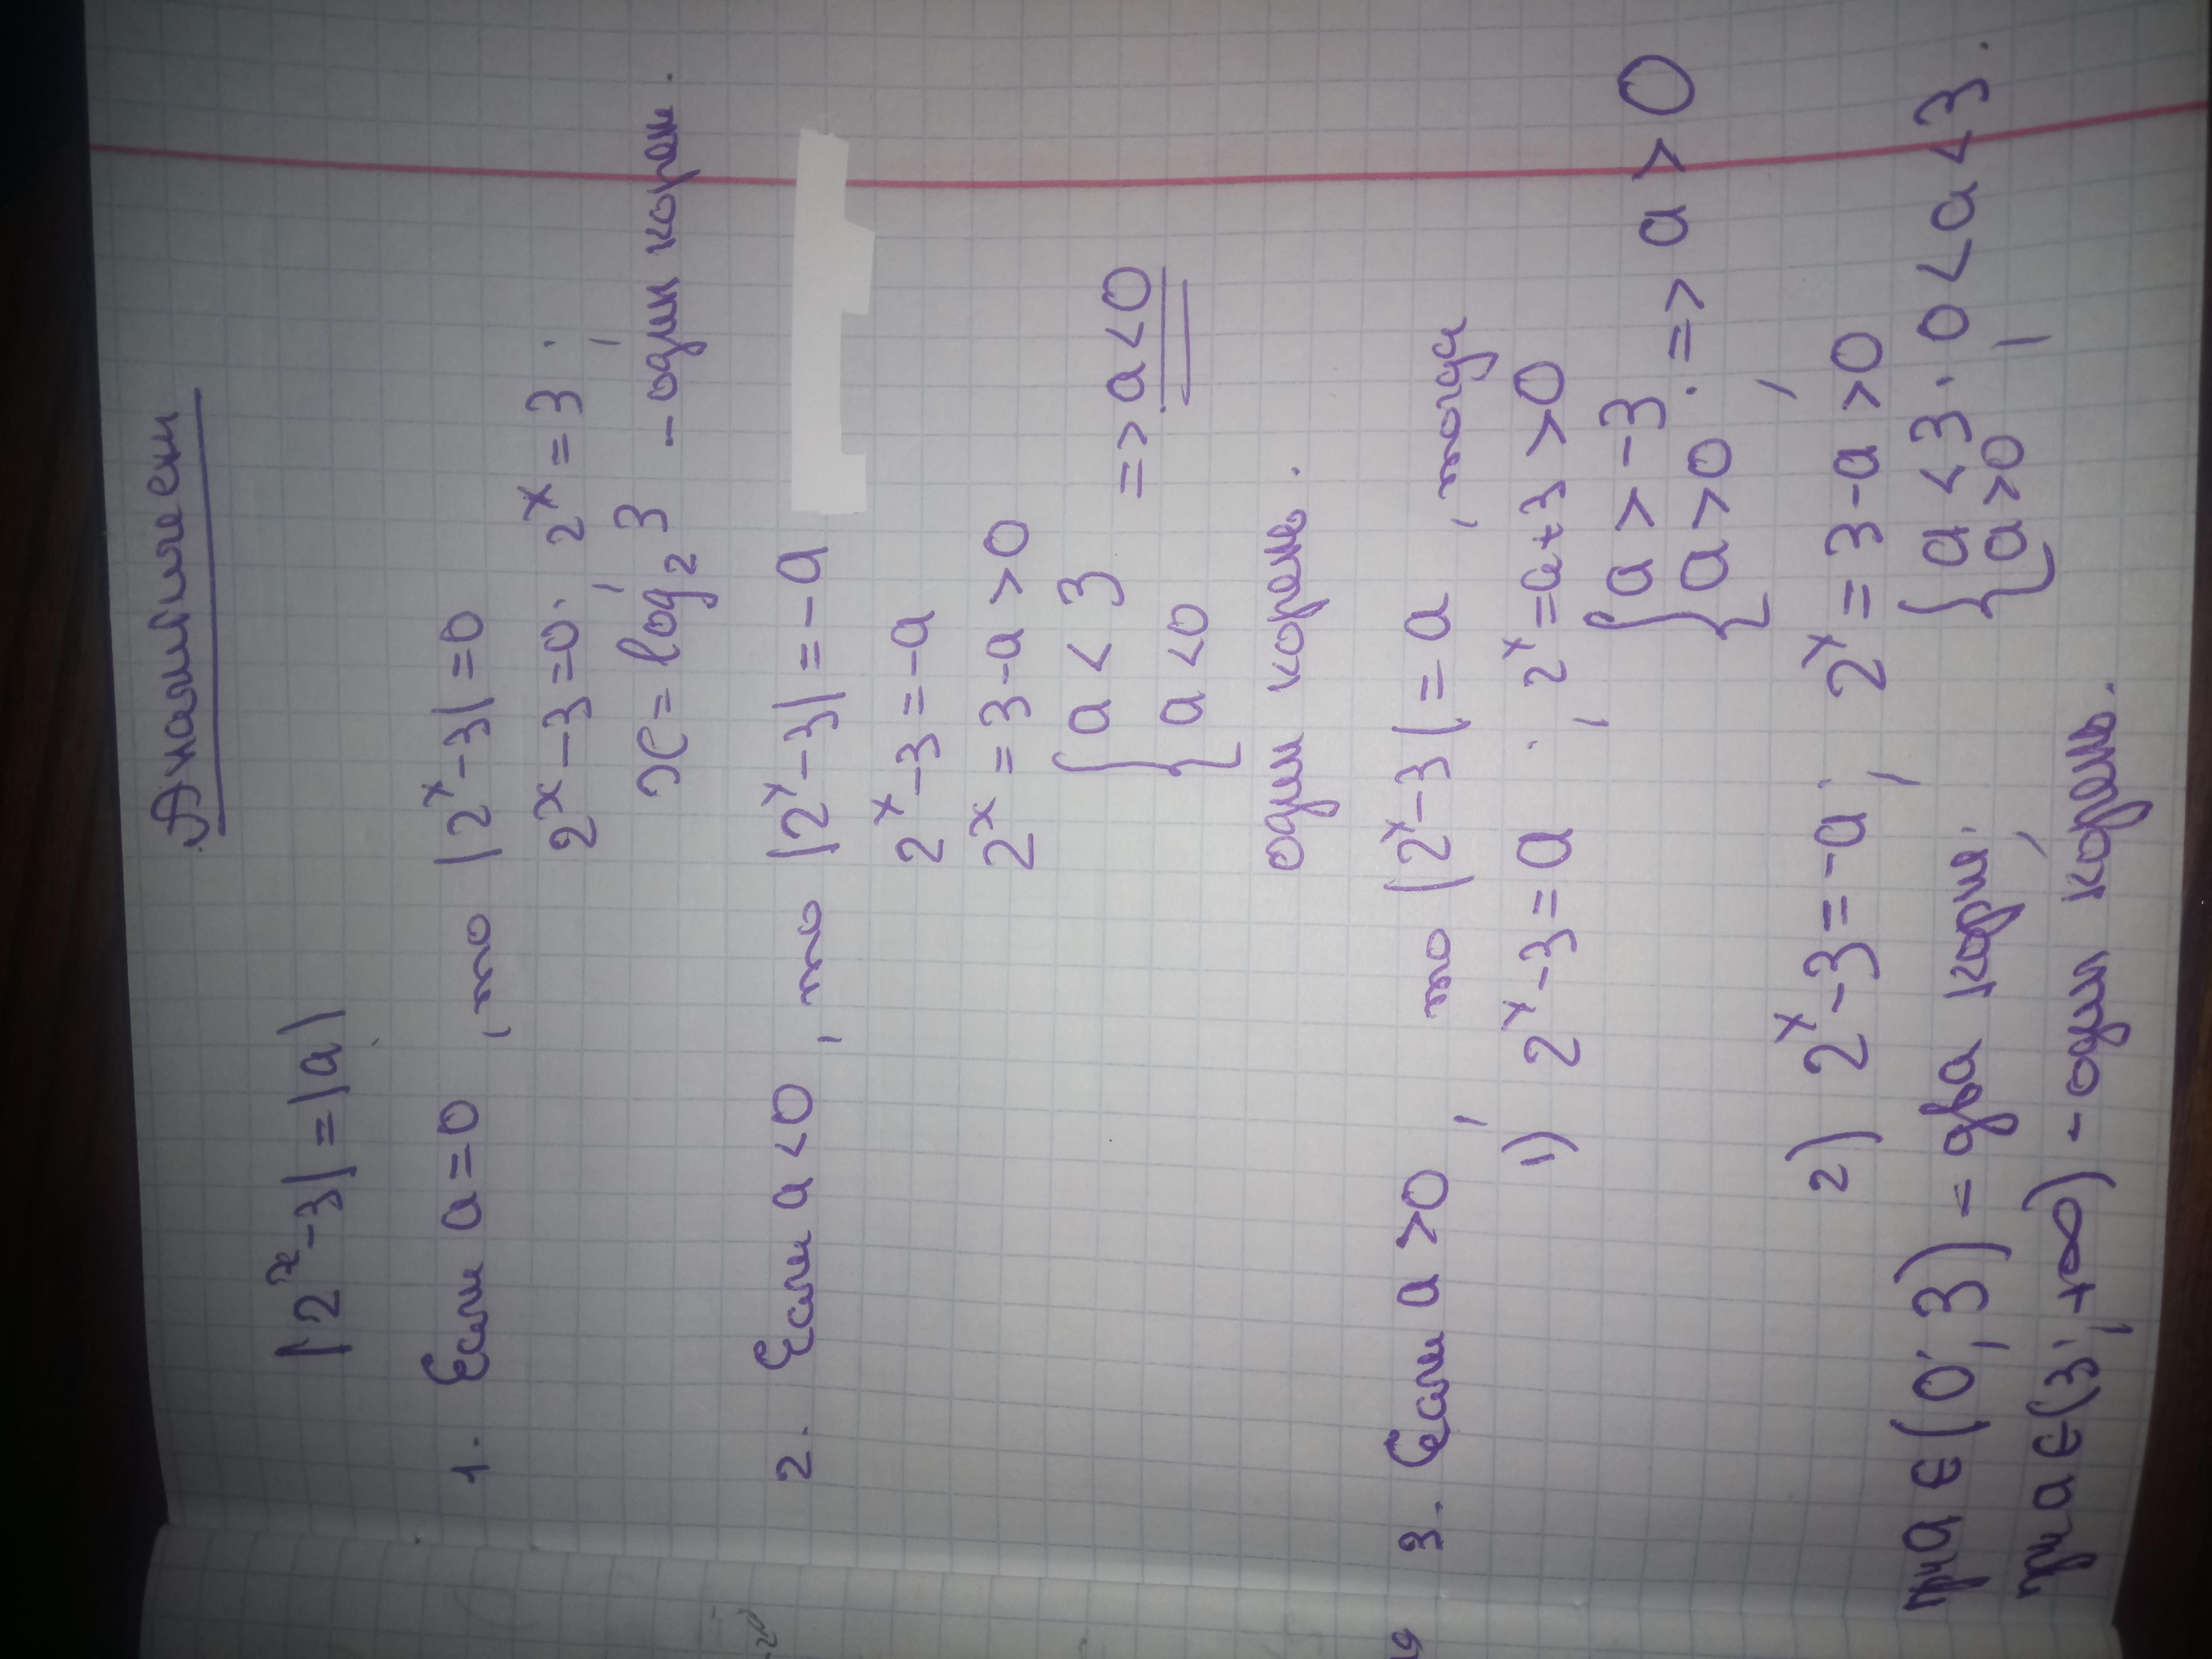 Аналитически
|2ˣ-3|=|a|
1. Если a=0, то |2ˣ-3|=0
2ˣ-3=0; 2ˣ=3;
x=log₂3 - один корень.
2. Если a<0, то |2ˣ-3|=-a
2ˣ-3=-a
2ˣ=3-a>0
{a<3
a<0 => a<0
один корень.
3. Если a>0, то |2ˣ-3|=a, тогда
1) 2ˣ-3=a; 2ˣ=a+3>0
{a>-3
a>0; => a>0
2) 2ˣ-3=-a; 2ˣ=3-a>0
{a<3
a>0; 0<a<3.
при a∈(0;3) = два корня;
при a∈(3;+∞) - один корень.